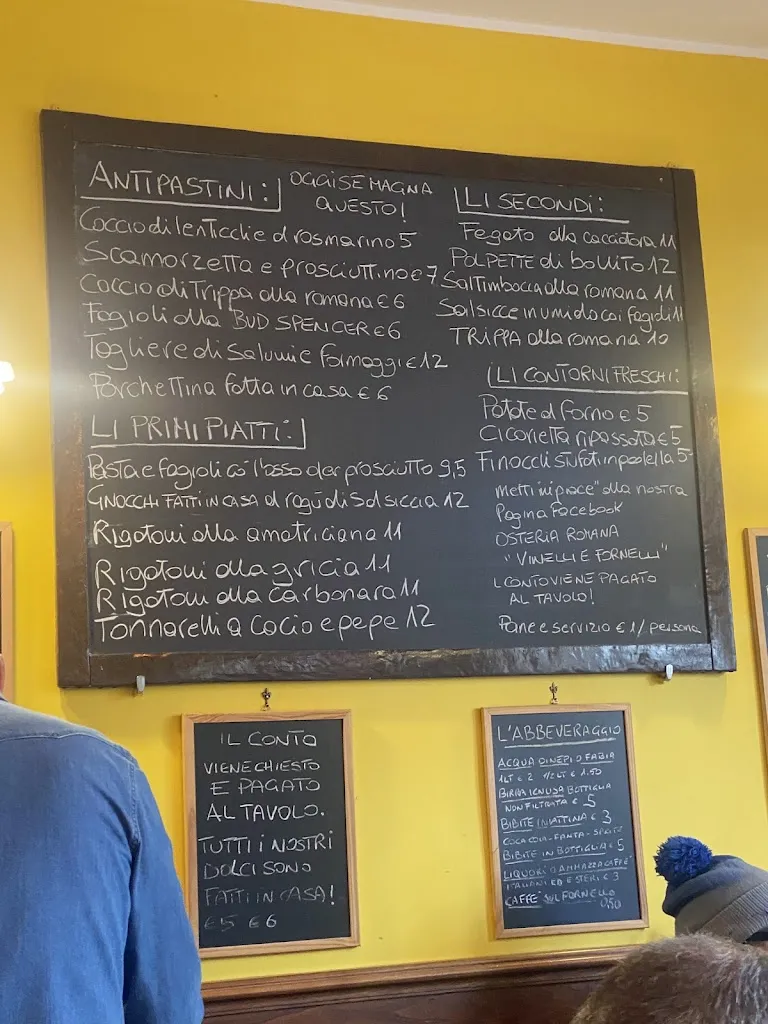 ANTIPASTINI:
OGGI SE MAGNA
QUESTO!
Coccio di lenticchie al rosmarino 5
Scamorzetta e prosciuttino € 7
Coccio di Trippa alla romana € 6
Fagioli alla BUD SPENCER € 6
Tagliere di Salumi e formaggi € 12
Porchettina fatta in casa € 6
LI PRIMI PIATTI:
Pasta e fagioli co' l'osso der prosciutto 9,5
GNOCCHI FATTI IN CASA al ragù di Salsiccia 12
Rigatoni alla amatriciana 11
Rigatoni alla gricia 11
Rigatoni alla carbonara 11
Tonnarelli a cacio e pepe 12
LI SECONDI:
Fegato alla cacciatora 11
POLPETTE di bollito 12
Saltimbocca alla romana 11
Salsicce in umido coi fagioli 11
TRIPPA alla romana 10
LI CONTORNI FRESCHI:
Patate al forno € 5
Cicorietta ripassata € 5
Finocchi stufati in padella 5
Metti mi piace" alla nostra
Pagina Facebook
OSTERIA ROMANA
"VINELLI E FORNELLI"
IL CONTO VIENE PAGATO
AL TAVOLO!
Pane e servizio € 1/persona
IL CONTO
VIENE CHIESTO
E PAGATO
AL TAVOLO.
TUTTI I NOSTRI
DOLCI SONO
FATTI IN CASA!
€5 €6
L'ABBEVERAGGIO
ACQUA DI NEPI O FABIA
1LT € 2 1/2 LT € 1.50
BIRRA ICNUSA BOTTIGLIA
NON FILTRATA € 5
BIBITE IN LATTINA € 3
COCA COLA - FANTA - SPRITE
BIBITE IN BOTTIGLIA € 5
LIQUORI O AMMAZZACAFFE'
ITALIANI ED ESTERI € 3
CAFFE' SUL FORNELLO
0,50